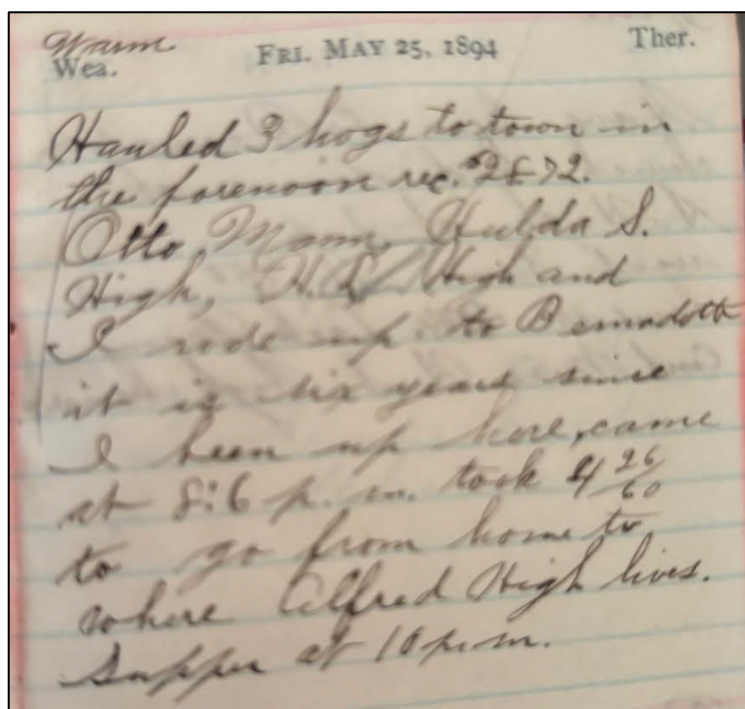 Warm
Wea. FRI. MAY 25, 1894 Ther.
Hauled 3 hogs to town in
the forenoon rec. $28.72.
Otto Mann, Hulda S.
High, H. S. High and
I rode up to Bernadotte
it is six years since
I been up here, came
at 8:6 p. m. took 4 26/60
to go from home to
where Alfred High lives.
Supper at 10 p.m.